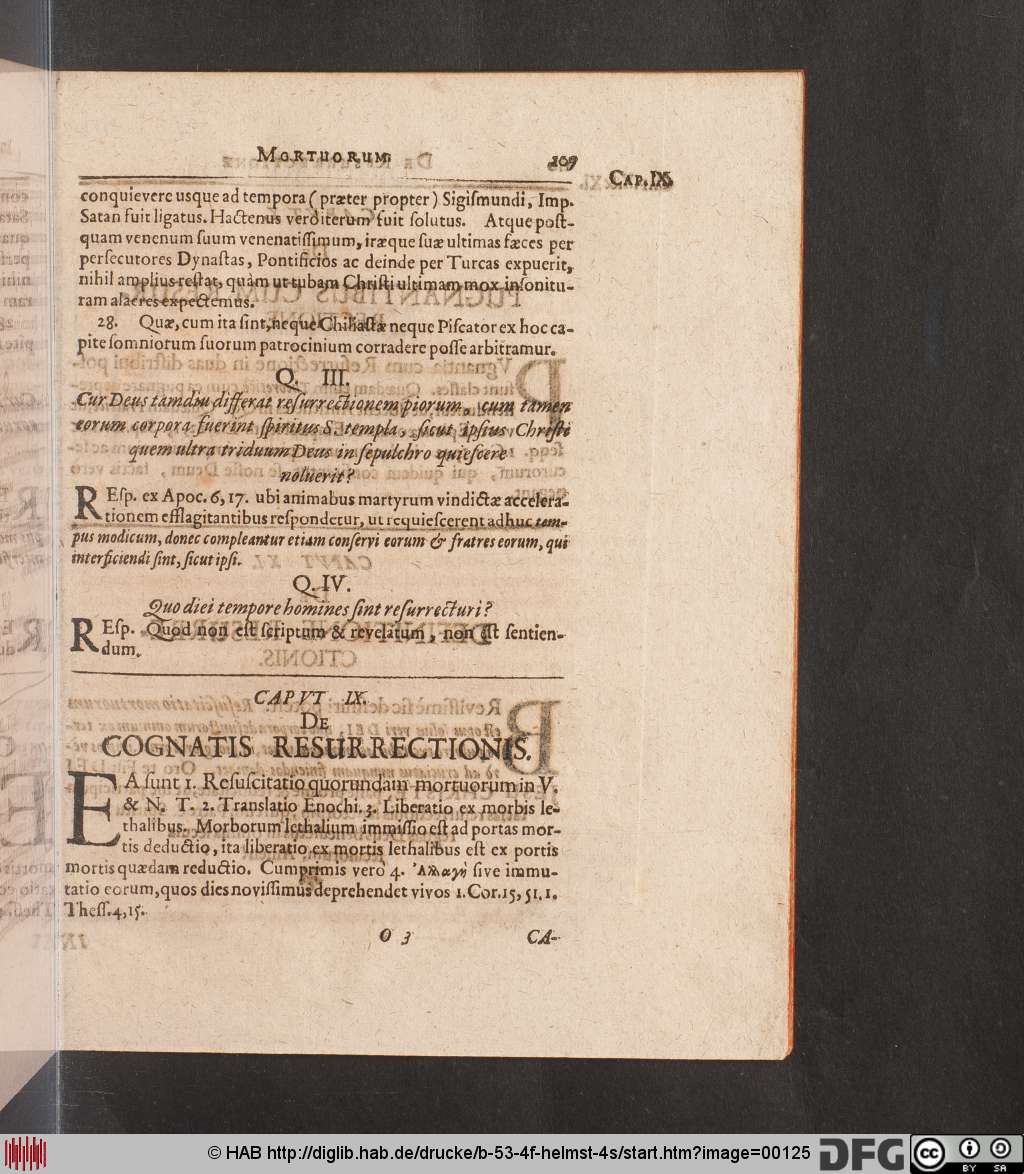 MORTUORUM. 109
CAP. IX.
conquievere usque ad tempora (præter propter) Sigismundi, Imp.
Satan fuit ligatus. Hactenus verò iterum fuit solutus. Atque post-
quam venenum suum venenatissimum, iræque suæ ultimas fæces per
persecutores Dynastas, Pontificios ac deinde per Turcas expuerit,
nihil amplius restat, quàm ut tubam Christi ultimam mox insonitu-
ram alacres expectemus.
28. Quæ, cum ita sint, neque Chiliastæ neque Piscator ex hoc ca-
pite somniorum suorum patrocinium corradere posse arbitramur.
Q. III.
Cur Deus tamdiu differat resurrectionem piorum, cum tamen
eorum corpora fuerint spiritus S. templa, sicut ipsius Christi
quem ultra triduum Deus in sepulchro quiescere
noluerit?
REsp. ex Apoc. 6, 17. ubi animabus martyrum vindictæ accelera-
tionem efflagitantibus respondetur, ut requiescerent adhuc tem-
pus modicum, donec compleantur etiam conservi eorum & fratres eorum, qui
interficiendi sint, sicut ipsi.
Q. IV.
Quo diei tempore homines sint resurrecturi?
REsp. Quod non est scriptum & revelatum, non est sentien-
dum.
CAPVT IX.
DE
COGNATIS RESURRECTIONIS.
EA sunt 1. Resuscitatio quorundam mortuorum in V.
& N. T. 2. Translatio Enochi. 3. Liberatio ex morbis le-
thalibus. Morborum lethalium immissio est ad portas mor-
tis deductio, ita liberatio ex mortis lethalibus est ex portis
mortis quædam reductio. Cumprimis verò 4. Ἀλλαγὴ sive immu-
tatio eorum, quos dies novissimus deprehendet vivos 1. Cor. 15, 51. 1.
Thess. 4, 15.
O 3 CA-
© HAB http://diglib.hab.de/drucke/b-53-4f-helmst-4s/start.htm?image=00125
DFG
cc BY SA